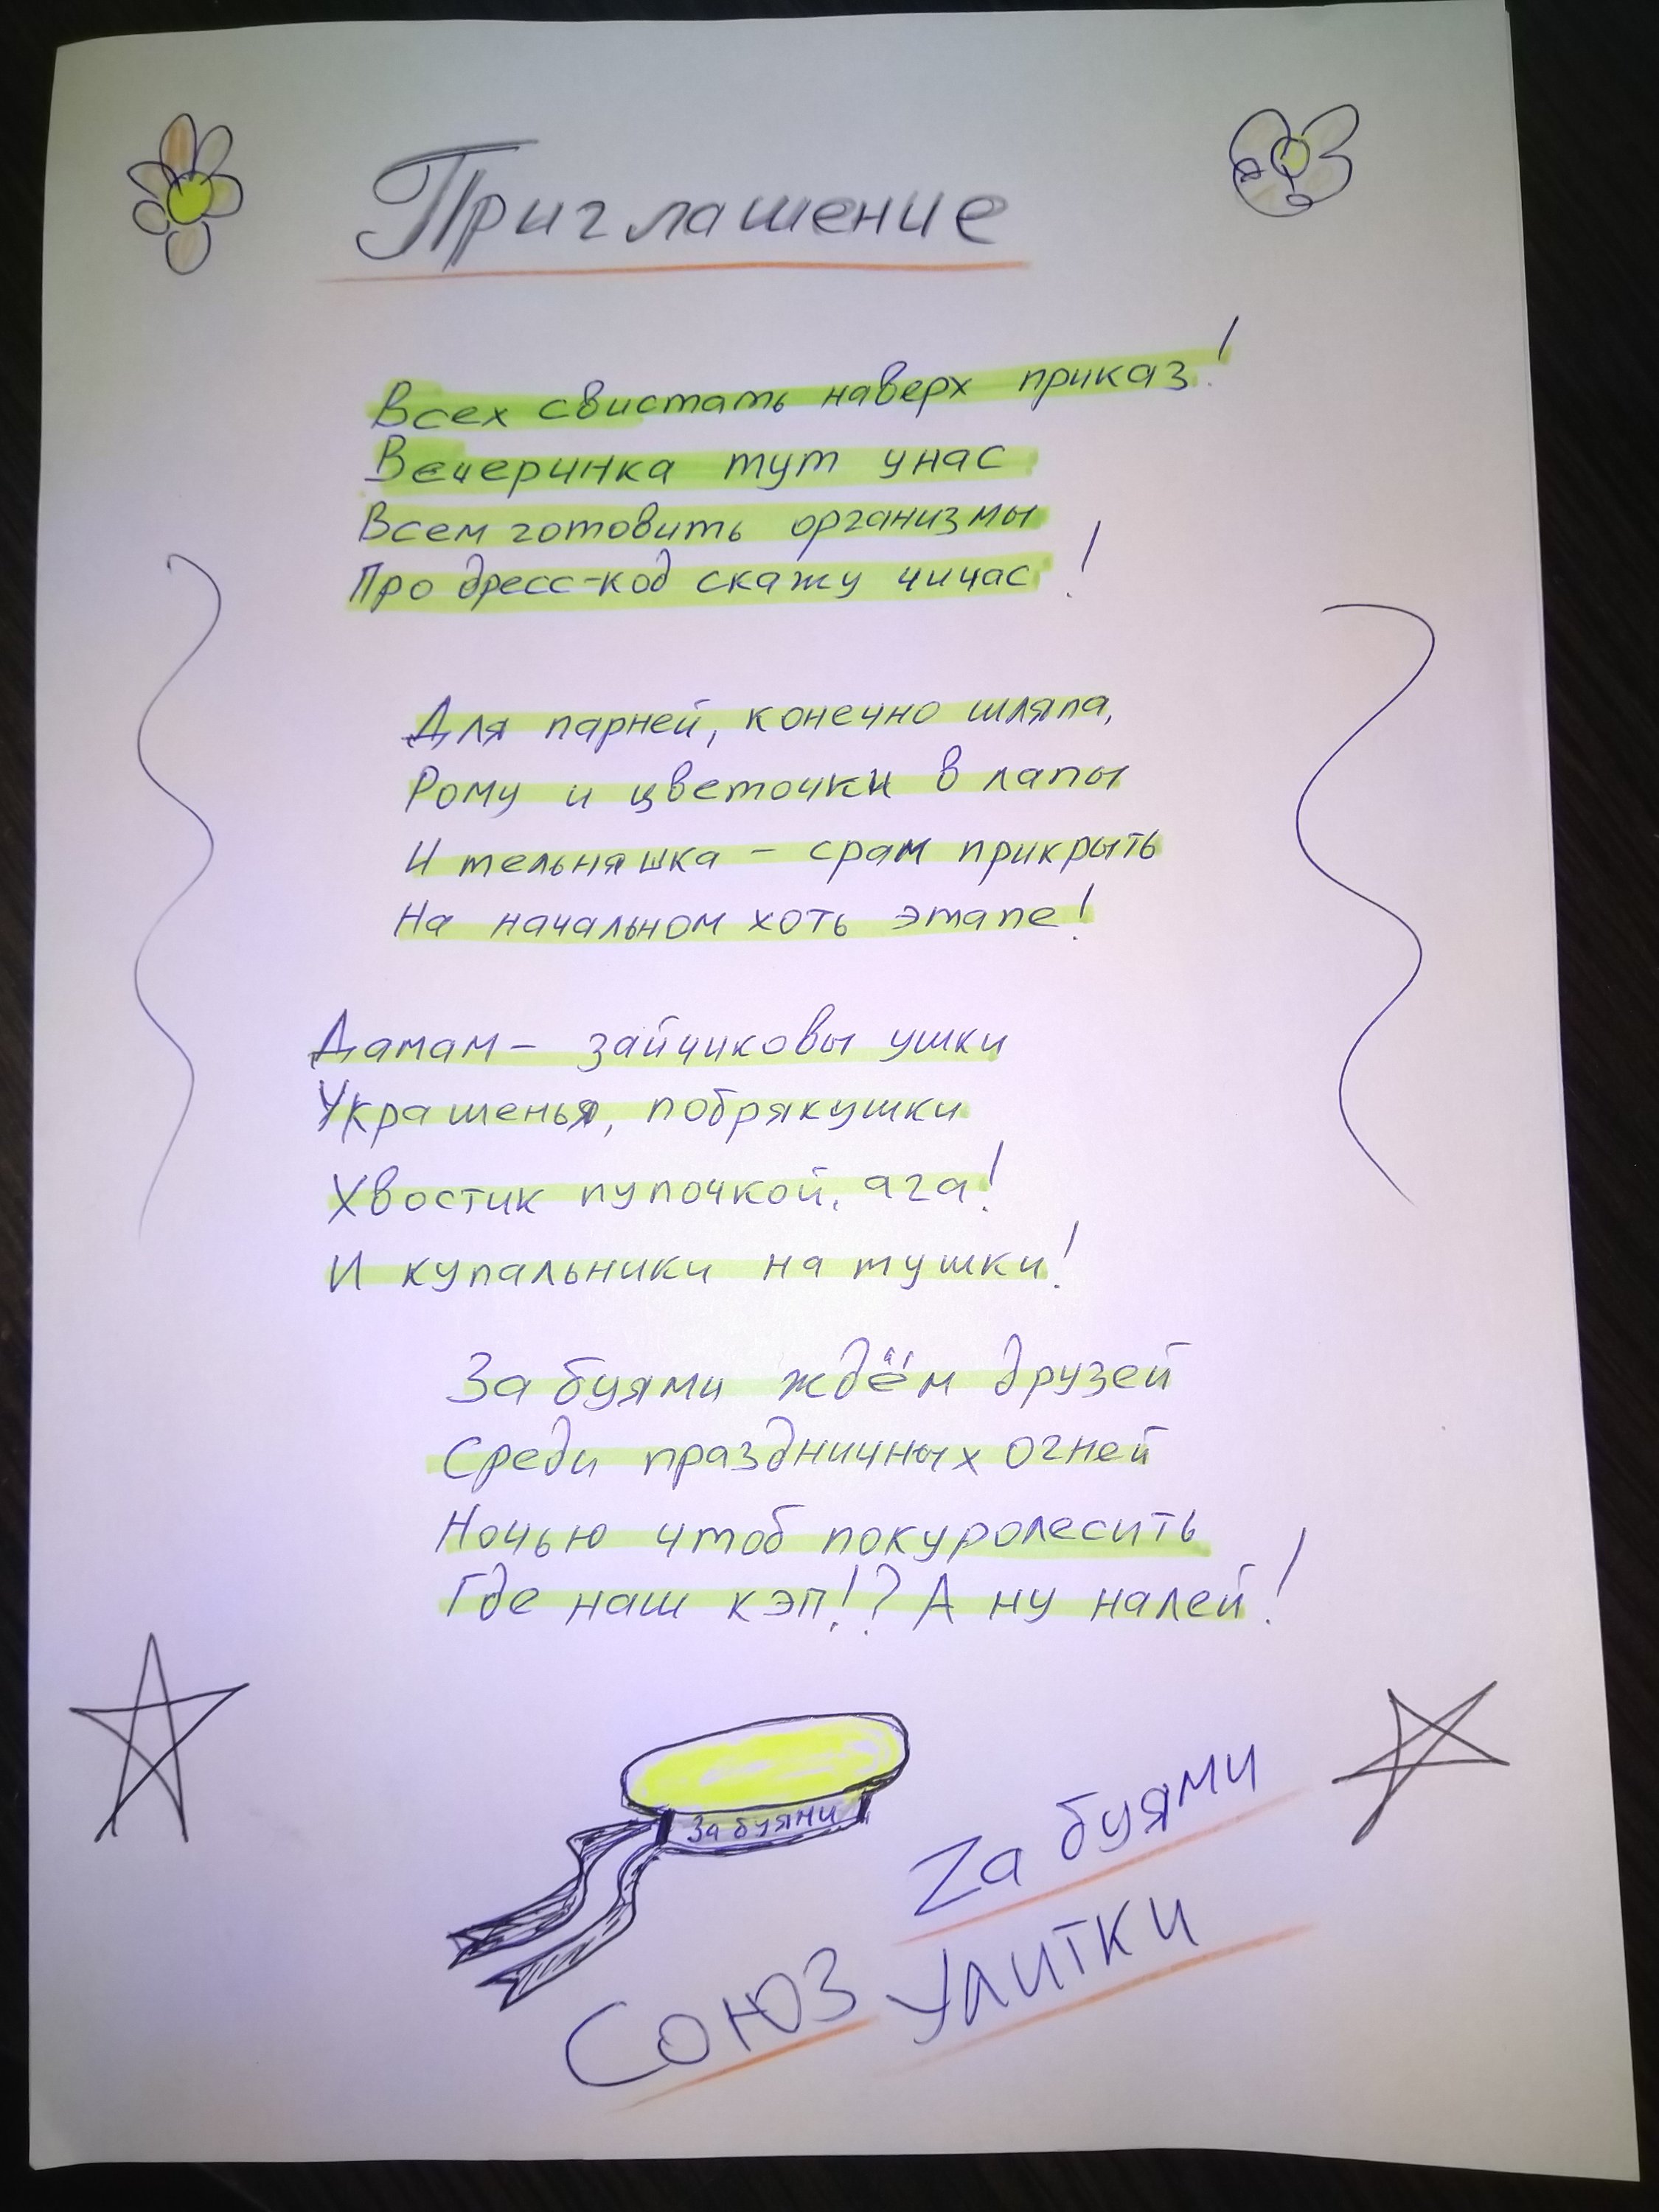 Приглашение
Всех свистать наверх приказ!
Вечеринка тут унас
Всем готовить организмы
Про дресс-код скажу чичас!
Для парней, конечно шляпа,
Рому и цветочки в лапы
И тельняшка - срам прикрыть
На начальном хоть этапе!
Дамам - зайчиковы ушки
Украшенья, побрякушки
Хвостик пупочкой, ага!
И купальники на тушки!
За буями ждём друзей
Среди праздничных огней
Ночью чтоб покуролесить
Где наш кэп!? А ну налей!
За буями
Zа буями
Союз Улитки